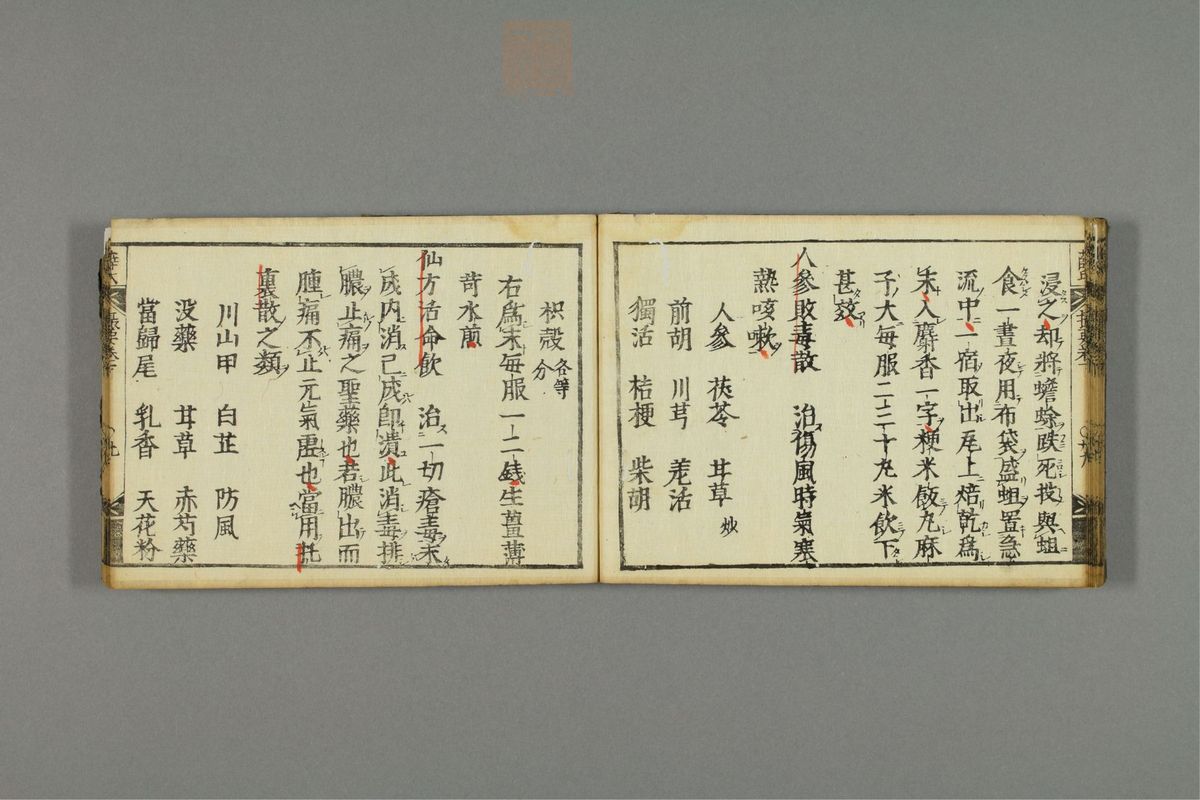 浸之却將蟾蜍跌死投與蛆
食一晝夜用布袋盛蛆置急
流中一宿取出瓦上焙乾爲
末入麝香一字粳米飯丸麻
子大每服二三十丸米飲下
甚效
人參敗毒散 治傷風時氣寒
熱咳嗽
人參 茯苓 甘草 炒
前胡 川芎 羌活
獨活 桔梗 柴胡
枳殼 各等分
右爲末每服一二錢生薑薄
苛水煎
仙方活命飲 治一切瘡毒未
成内消已成即潰此消毒排
膿止痛之聖藥也若膿出而
腫痛不止元氣虛也當用托
裏散之類
川山甲 白芷 防風
没藥 甘草 赤芍藥
當歸尾 乳香 天花粉